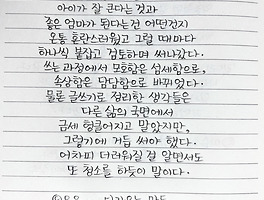 아이가 잘 큰다는 것과
좋은 엄마가 된다는건 어떤건지
온통 혼란스러웠고 그럴 때마다
하나씩 붙잡고 검토하며 써나갔다.
쓰는 과정에서 모호함은 섬세함으로,
속상함은 담담함으로 바뀌었다.
물론 글쓰기로 정리한 생각들은
다른 삶의 국면에서
금세 헝클어지고 말았지만,
그렇기에 거듭 써야 했다.
어차피 더러워질 걸 알면서도
또 청소를 하듯이 말이다.